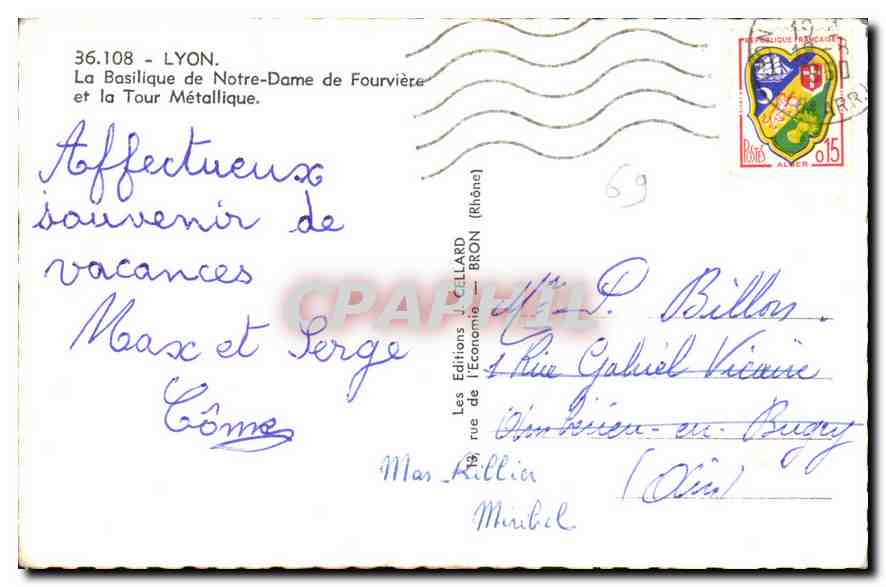 36.108 - LYON.
La Basilique de Notre-Dame de Fourvière
et la Tour Métallique.
Affectueux
souvenir de
vacances
Max et Serge
Côme
Les Editions J. CELLARD
13, rue de l'Economie — BRON (Rhône)
REPUBLIQUE FRANÇAISE
POSTES
0,15
ALGER
69
CPAPHIL
Mr P. Billon.
1 Rue Gabriel Vicaire
Ambérieu-en-Bugey
(Ain)
Mas Rillier
Miribel